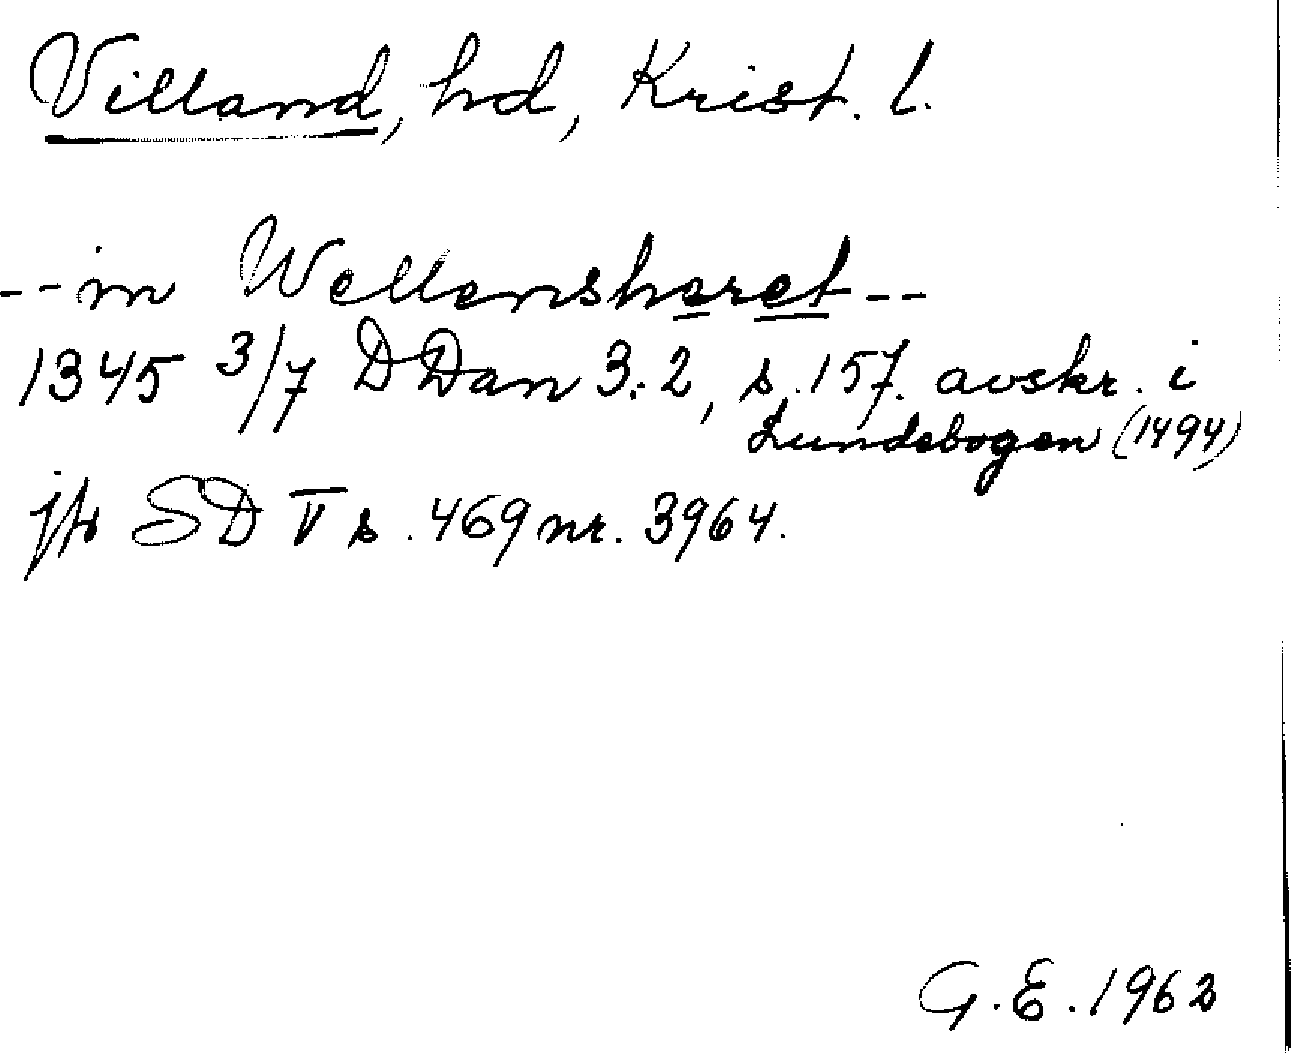 Villand, hd, Krist. l.
-- in Wellensheret --
1345 3/7 DDan 3:2, s. 157. avskr. i
Lundebogen (1494)
jfr SD V s. 469 nr. 3964.
G.E. 1962